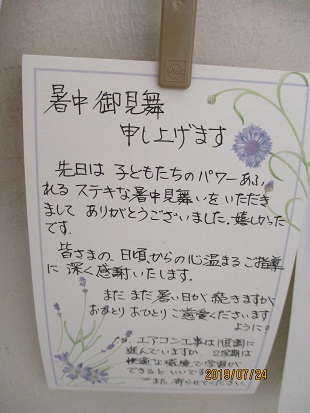 暑中御見舞
申し上げます
先日は子どもたちのパワーあふ
れるステキな暑中見舞いをいただき
まして ありがとうございました。嬉しかった
です。
皆さまの日頃からの心温まるご指導
に深く感謝いたします。
まだまだ暑い日が続きますが
おひとりおひとりご慈愛くださいます
ように。
エアコン工事は順調に
進んでいますか。2学期は
快適な環境で学習が
できるといいです
また寄らせてください。
2018/07/24